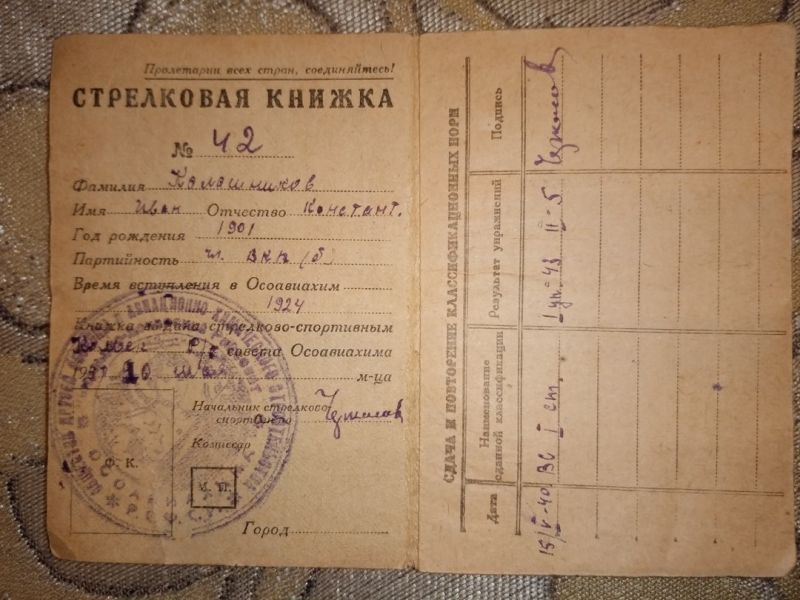 Пролетарии всех стран, соединяйтесь!
СТРЕЛКОВАЯ КНИЖКА
№ 42
Фамилия Калашников
Имя Иван Отчество Констант.
Год рождения 1901
Партийность чл. ВКП(б)
Время вступления в Осоавиахим
1924
Книжка выдана стрелково-спортивным
совета Осоавиахима
10 м-ца
Начальник стрелково
спортивного
Комиссар
Ф. К.
М. П.
Город
СДАЧА И ПОВТОРЕНИЕ КЛАССИФИКАЦИОННЫХ НОРМ
Дата Наименование сданной классификации Результат упражнений Подпись
15/V-40 ВС I ст. I уп-43 II-5